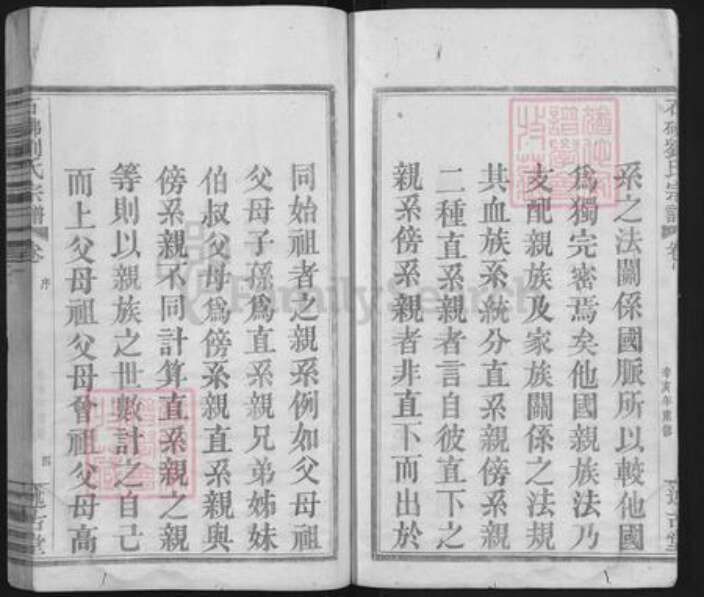 系之法關係國脈所以較他國
爲獨完密焉矣他國親族法乃
支配親族及家族關係之法規
共血族系統分直系親傍系親
二種直系親者言自彼直下之
親系傍系親者非直下而出於
同始祖者之親系例如父母祖
父母子孫爲直系親兄弟姊妹
伯叔父母爲傍系親直系親與
傍系親不同計算直系親之親
等則以親族之世數計之自己
而上父母祖父母曾祖父母高
劉氏宗譜
卷
辛亥年重修
劉氏宗譜
卷
序
四
FamilySearch